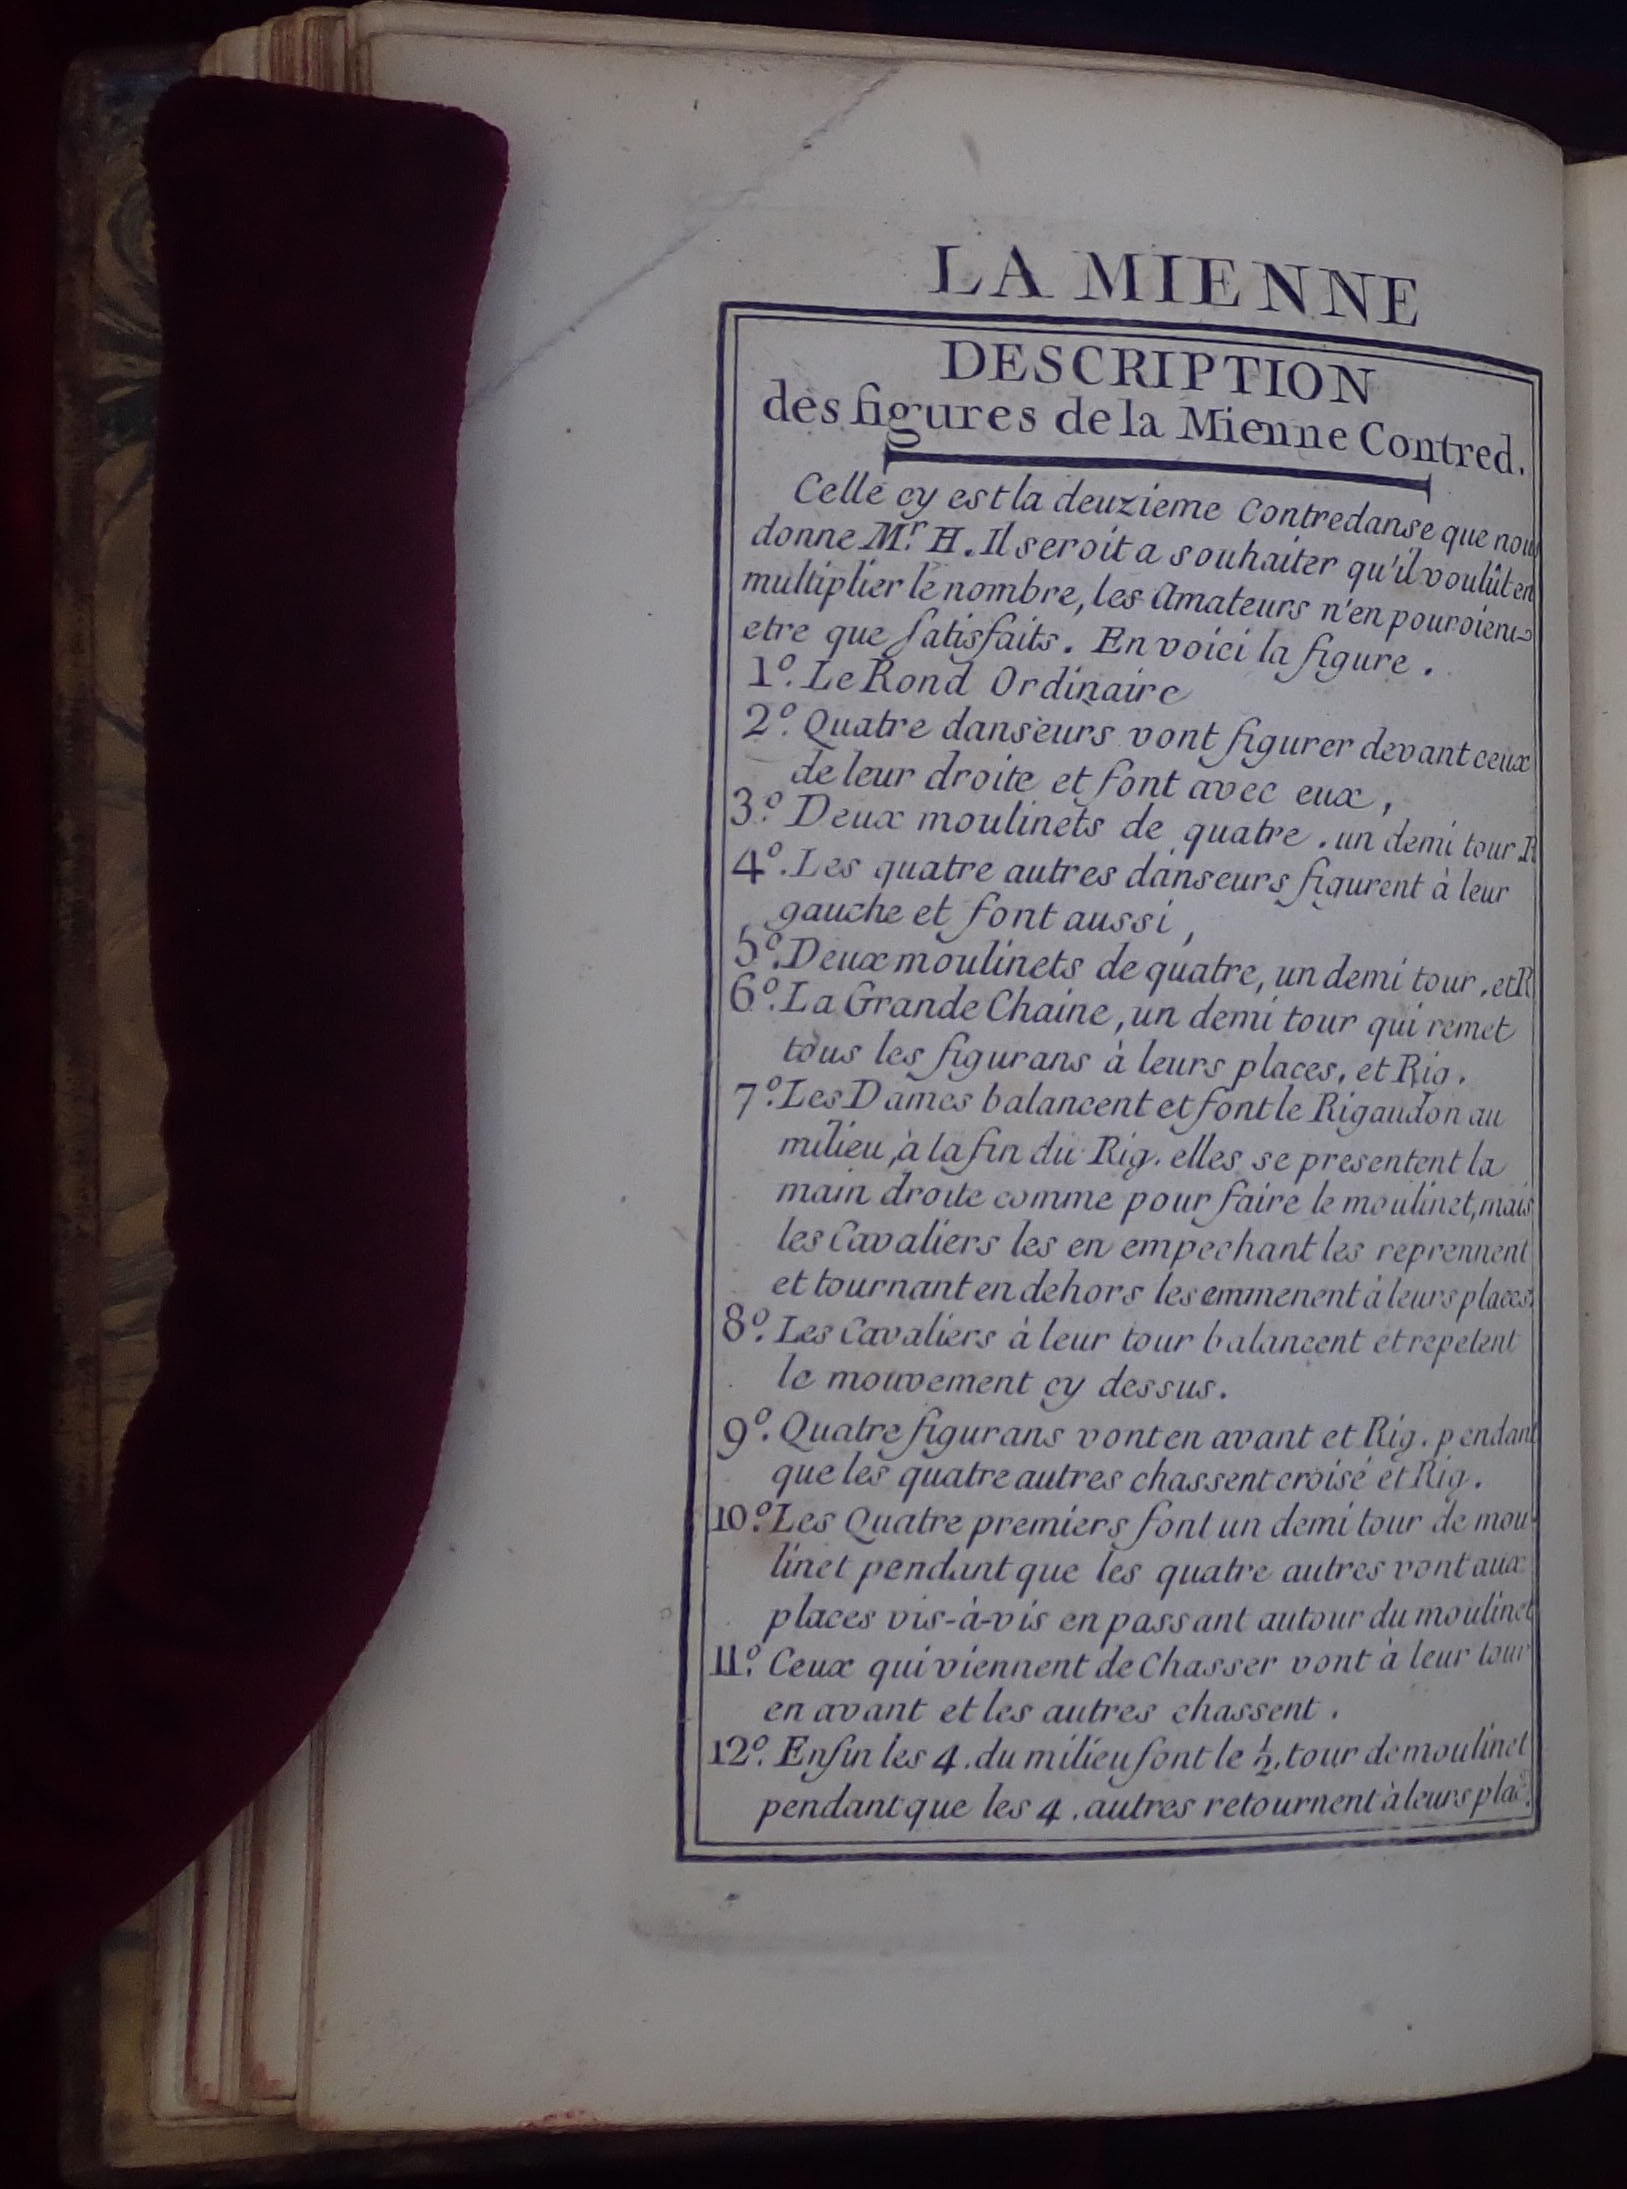 LA MIENNE
DESCRIPTION
des figures de la Mienne Contred.
Celle cy est la deuzieme Contredanse que nous
donne Mr. H. Il seroit a souhaiter qu'il voulût en
multiplier le nombre, les Amateurs n'en pouroient
etre que satisfaits. En voici la figure.
1º. Le Rond Ordinaire
2º. Quatre danseurs vont figurer devant ceux
de leur droite et font avec eux,
3º. Deux moulinets de quatre. un demi tour. R
4º. Les quatre autres danseurs figurent à leur
gauche et font aussi,
5º. Deux moulinets de quatre, un demi tour. et R
6º. La Grande Chaine, un demi tour qui remet
tous les figurans à leurs places, et Rig.
7º. Les Dames balancent et font le Rigaudon au
milieu, à la fin du Rig. elles se presentent la
main droite comme pour faire le moulinet, mais
les Cavaliers les en empechant les reprennent
et tournant en dehors les emmenent à leurs places.
8º. Les Cavaliers à leur tour balancent et repetent
le mouvement cy dessus.
9º. Quatre figurans vont en avant et Rig. pendant
que les quatre autres chassent croisé et Rig.
10º. Les Quatre premiers font un demi tour de mou-
linet pendant que les quatre autres vont aux
places vis-à-vis en passant autour du moulinet
11º. Ceux qui viennent de Chasser vont à leur tour
en avant et les autres chassent.
12º. Enfin les 4. du milieu font le ½. tour de moulinet
pendant que les 4. autres retournent à leurs plac.